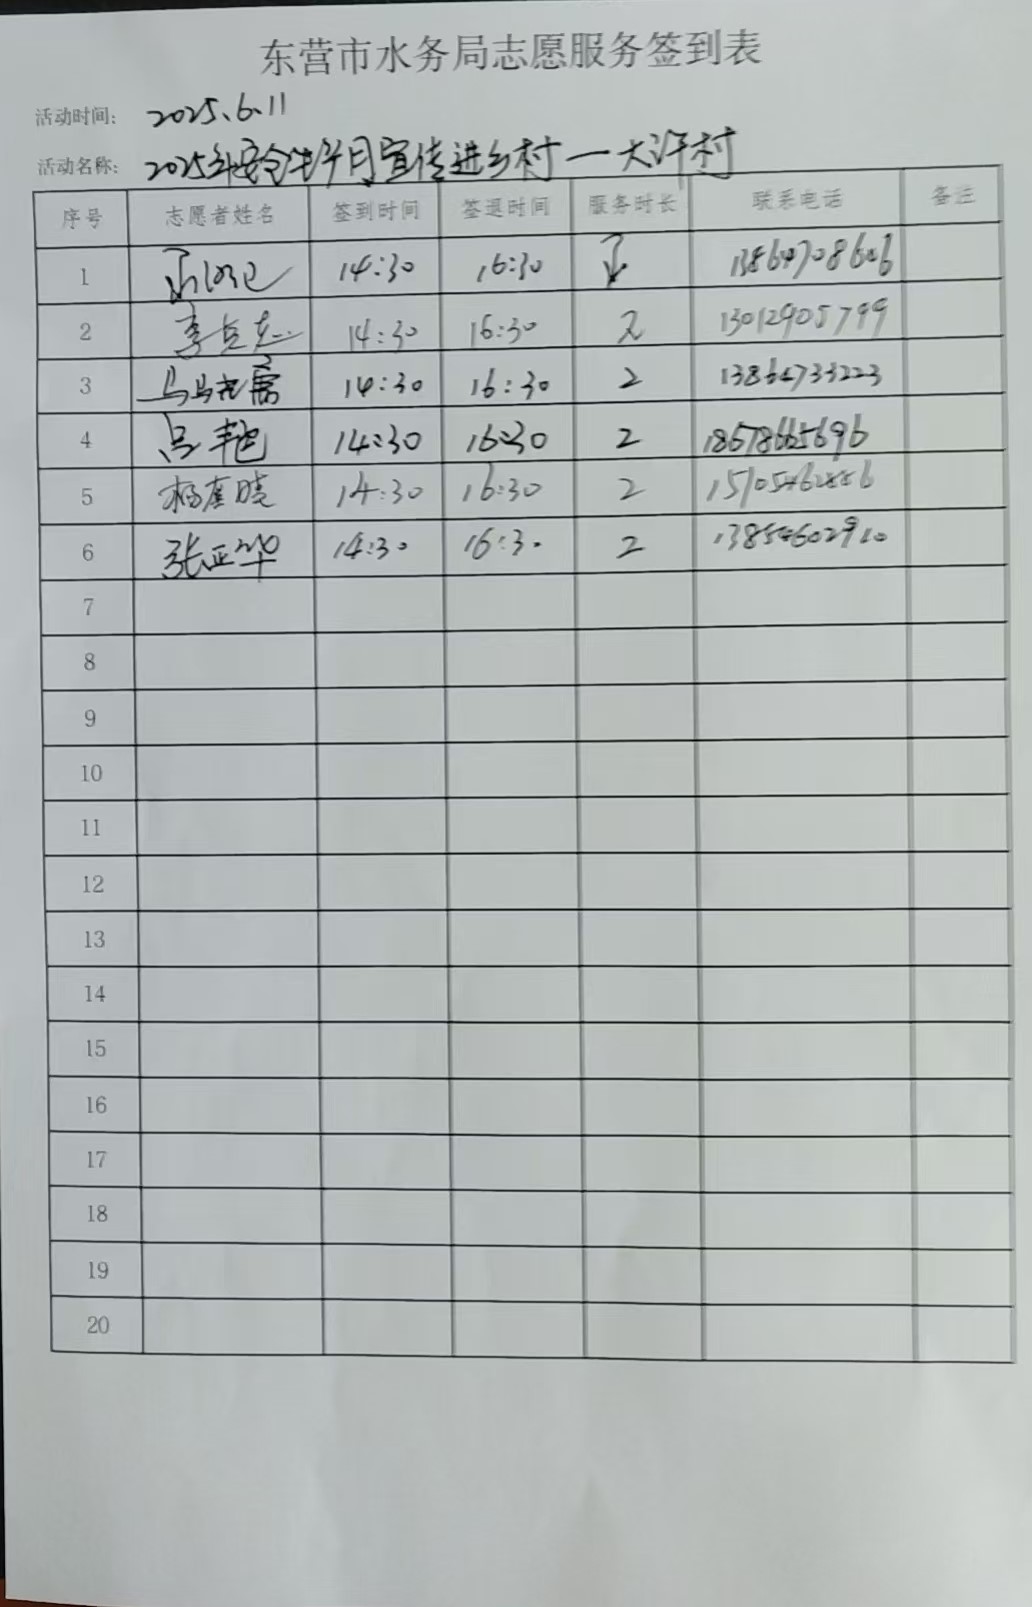 东营市水务局志愿服务签到表
活动时间: 2025.6.11
活动名称: 2025年安全生产月宣传进乡村一大许村
序号 志愿者姓名 签到时间 签退时间 服务时长 联系电话 备注
1 14:30 16:30
2 李 14:30 16:30 2 13012905799
3 14:30 16:30 2 13864733223
4 吕艳 14:30 16:30 2 18678665696
5 杨 晓 14:30 16:30 2
6 张正华 14:30 16:30 2 13854602910
7
8
9
10
11
12
13
14
15
16
17
18
19
20